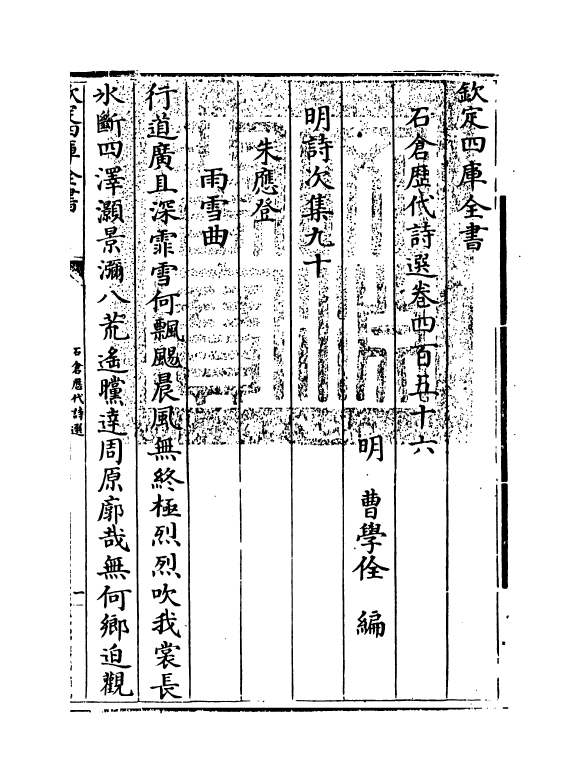 欽定四庫全書
石倉歷代詩選卷四百五十六
明 曹學佺 編
明詩次集九十
朱應登
雨雪曲
行道廣且深霏雪何飄颺晨風無終極烈烈吹我裳長
氷斷四澤灝景瀰八荒遙曭達周原廓哉無何鄉迫觀
欽定四庫全書
石倉歷代詩選
一